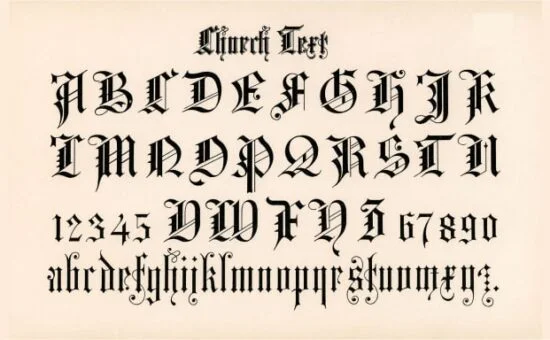 Church Text
ABCDEFGHJK
LMNOPQRSTU
12345 VWXYZ 67890
abcdefghijklmnopqrstuvwxyz.